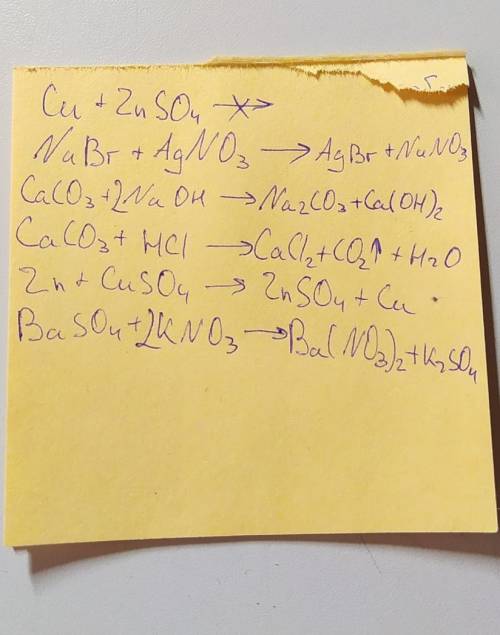 Cu + ZnSO₄ -x->
NaBr + AgNO₃ → AgBr + NaNO₃
CaCO₃ + 2NaOH → Na₂CO₃ + Ca(OH)₂
CaCO₃ + HCl → CaCl₂ + CO₂↑ + H₂O
Zn + CuSO₄ → ZnSO₄ + Cu
BaSO₄ + 2KNO₃ → Ba(NO₃)₂ + K₂SO₄